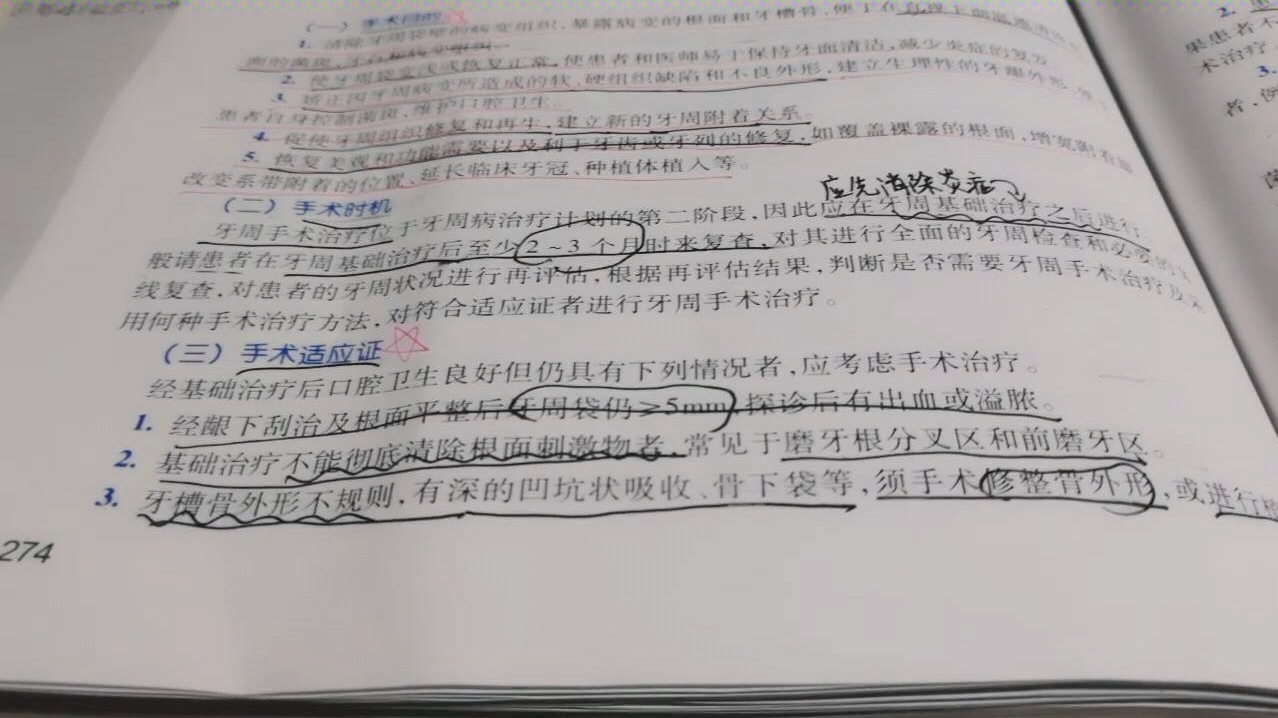 （一）手术目的
1. 清除牙周袋壁的病变组织，暴露病变的根面和牙槽骨，便于在直视下彻底清除根
面的菌斑、牙石和病变组织。
2. 使牙周袋变浅或恢复正常，使患者和医师易于保持牙面清洁，减少炎症的复发。
3. 矫正因牙周病变所造成的软、硬组织缺陷和不良外形，建立生理性的牙龈外形，
患者自身控制菌斑，维护口腔卫生。
4. 促使牙周组织修复和再生，建立新的牙周附着关系。
5. 恢复美观和功能需要以及利于牙齿或牙列的修复，如覆盖裸露的根面，增宽附着龈
改变系带附着的位置、延长临床牙冠、种植体植入等。
应先消除炎症
（二）手术时机
牙周手术治疗位于牙周病治疗计划的第二阶段，因此应在牙周基础治疗之后进行
般请患者在牙周基础治疗后至少2～3个月时来复查，对其进行全面的牙周检查和必要的
线复查，对患者的牙周状况进行再评估，根据再评估结果，判断是否需要牙周手术治疗及采
用何种手术治疗方法，对符合适应证者进行牙周手术治疗。
（三）手术适应证
经基础治疗后口腔卫生良好但仍具有下列情况者，应考虑手术治疗。
1. 经龈下刮治及根面平整后牙周袋仍≥5mm，探诊后有出血或溢脓。
2. 基础治疗不能彻底清除根面刺激物者，常见于磨牙根分叉区和前磨牙区。
3. 牙槽骨外形不规则，有深的凹坑状吸收、骨下袋等，须手术修整骨外形，或进行
274
2.
果患者不
术治疗
3.
者，